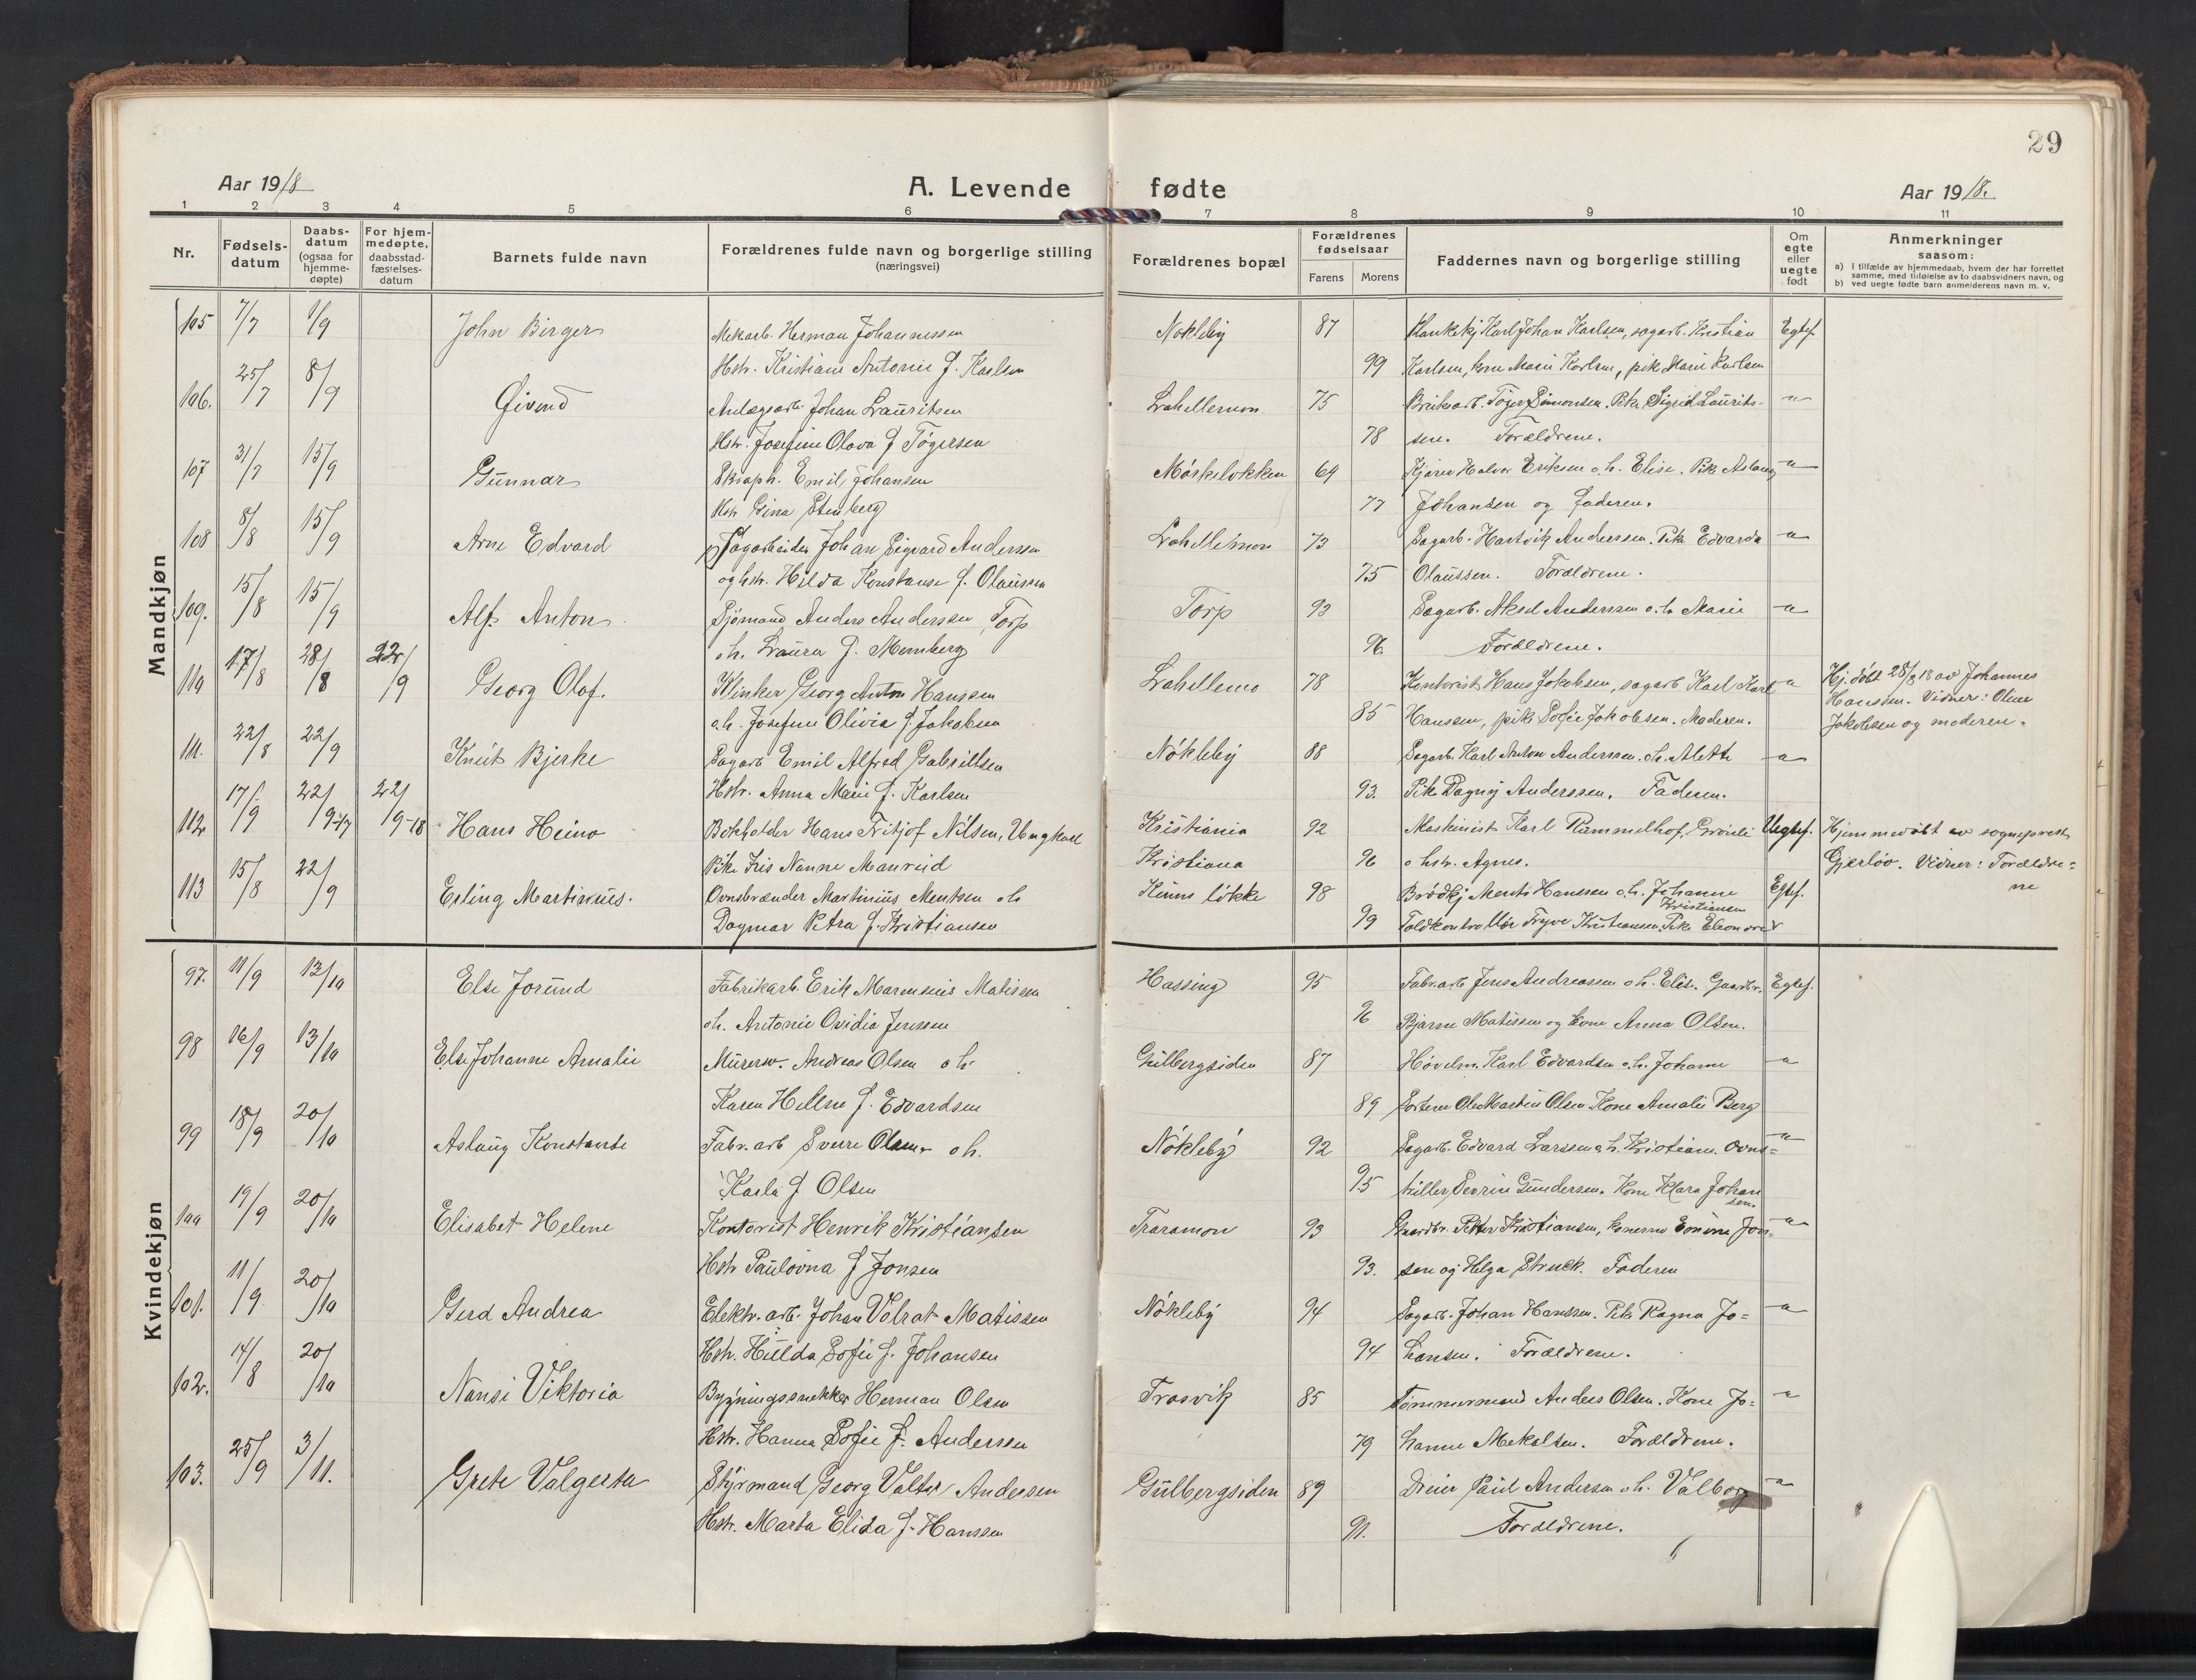 29
Aar 1918
A. Levende fødte
Aar 1918.
1 2 3 4 5 6 7 8 9 10 11
Nr.
Fødsels-
datum
Daabs-
datum
(ogsaa for
hjemme-
døpte)
For hjem-
medøpte,
daabsstad-
fæstelses-
datum
Barnets fulde navn
Forældrenes fulde navn og borgerlige stilling
(næringsvei)
Forældrenes bopæl
Forældrenes
fødselsaar
Farens Morens
Faddernes navn og borgerlige stilling
Om
egte
eller
uegte
født
Anmerkninger
saasom:
a) i tilfælde av hjemmedaab, hvem der har forrettet
samme, med tilføielse av to daabsvidners navn, og
b) ved uegte fødte barn anmelderens navn m. v.
Mandkjøn
105 7/7 1/9 John Birger Mekarb. Herman Johannessen Nokleby 87 Karl Johan Karlsen, sagarb. Kristian Egtef.
Hstr. Kristiane Antonie f. Karlsen 99 Karlsen, kone Marie Karlsen, pike Marie Karlsen
106. 25/7 8/9 Øivind Anlægsarb. Johan Lauritsen Lahellemon 75 Bruksarb. Tøger Simonsen. Pike Sigrid Laurits- "
Hstr. Josefine Olava f Tøgersen 78 sen. Forældrene.
107 31/7 15/9 Gunnar Skraph. Emil Johansen Møskeløkken 64 Kjører Halvor Eriksen o.h. Elise. Pike Aslaug "
Hstr Gina Stenberg 77 Johansen og faderen.
108 8/8 15/9 Arne Edvard Sagarbeider Johan Sigvard Anderssen Lahellemon 73 Sagarb. Hartvik Anderssen. Pike Edvarda "
og hstr. Hilda Konstanse f. Olaussen 75 Olaussen. Forældrene.
109. 15/8 15/9 Alf Anton Sjømand Anders Anderssen, Torp Torp 93 Sagarb. Aksel Anderssen o.h Marie "
o.h. Laura f. Mernberg 96. Forældrene.
110 17/8 28/8 22/9 Georg Olaf. Klinker Georg Anton Hanssen Lahellemo 78 Kontorist Hans Jakobsen, sagarb Karl Karl " Hj. døbt 28/8 18 av Johannes
o.h. Josefine Olivia f. Jakobsen 85 Hanssen, pike Sofie Jakobsen. Moderen. Hanssen. Vidner: Oline
Jakobsen og moderen.
111. 22/8 22/9 Knut Bjerke Sagarb Emil Alfred Gabrielsen Nökleby 88 Sagarb. Karl Anton Anderssen. o.h. Alette "
Hstr. Anna Marie f. Karlsen 93. Pike Dagny Anderssen. Faderen.
112 17/9 22/9-17 22/9-18 Hans Heino Bokholder Hans Fritjof Nilsen, Ungkarl Kristiania 92 Maskinist Karl Rummelhof, Grönli Uegtef. Hjemmedøbt av sogneprest
Pike Iris Nanne Manreid Kristiana 96 o hstr. Agnes. Gjerløv. Vidner: Forældre-
ne
113 15/8 22/9 Erling Martinius. Ovnsbrænder Martinius Mentsen oh Kiuns lökke 98 Brødkj Ments Hanssen o.h. Johanne Egtef.
Kristiansen
Dagmar Petra f. Kristiansen 99 Toldkontrollør Trygve Kristiansen, Pike Eleonore
Kvindekjøn
97. 11/9 13/10 Else Jorund Fabrikarb. Erik Marensius Matissen Hassing 95 Fabr.arb Jens Andreassen o h. Elise. Gaardbr. Egtef.
oh. Antonie Ovidia Jenssen 96 Bjarne Matissen og kone Anna Olsen.
98 16/9 13/10 Else Johanne Amalie Murerm. Andreas Olsen o h Gulbergsiden 87 Høvelm. Karl Edvardsen o.h. Johanne "
Karen Hellene f. Edvardsen 89 Ole Martin Olsen Kone Amalie Berg
99 18/9 20/10 Aslaug Konstanse Fabr.arb Sverre Olsen o h. Nökleby 92 Sagarb. Edvard Larssen o.h. Kristiane. Ovns- "
Karla f Olsen 95 Severin Gundersen. Kone Klara Johan
sen.
100 19/9 20/10 Elisabet Helene Kontorist Henrik Kristiansen Traramon 93 Gaardbr. Petter Kristiansen, konerne Jon- "
Hstr Paulovna f Jonsen 93. sen og Helga Struck. Faderen
101. 11/9 20/10 Gerd Andrea Elektr. arb. Johan Volrat Matissen Nökleby 94 Sagarb. Johan Hanssen. Pike Ragna Jo- "
Hstr. Hulda Sofie f. Johansen 94 hansen. Forældrene.
102. 14/8 20/10 Nansi Viktoria Bygningssnekker Herman Olsen Trosvik 85 Tømmermand Anders Olsen. Kone Jo- "
Hstr. Hanna Sofie f. Andersen 79 hanne Mekalsen. Forældrene.
103. 25/9 3/11. Grete Valgerta Styrmand Georg Valter Andersen Gulbergsiden 89 Dreier Paul Andersen o.h. Valborg "
Hstr. Marta Elida f. Hanssen 91. Forældrene.